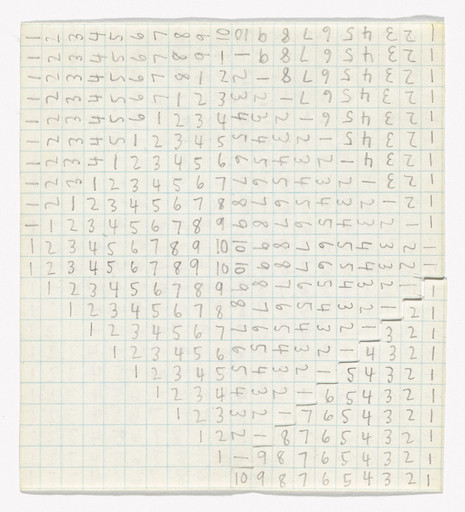 1 2 3 4 5 6 7 8 9 10 10 9 8 7 6 5 4 3 2 1
1 2 3 4 5 6 7 8 9 1 1 9 8 7 6 5 4 3 2 1
1 2 3 4 5 6 7 8 1 2 2 1 8 7 6 5 4 3 2 1
1 2 3 4 5 6 7 1 2 3 3 2 1 7 6 5 4 3 2 1
1 2 3 4 5 6 1 2 3 4 4 3 2 1 6 5 4 3 2 1
1 2 3 4 5 1 2 3 4 5 5 4 3 2 1 5 4 3 2 1
1 2 3 4 1 2 3 4 5 6 6 5 4 3 2 1 4 3 2 1
1 2 3 1 2 3 4 5 6 7 7 6 5 4 3 2 1 3 2 1
1 2 1 2 3 4 5 6 7 8 8 7 6 5 4 3 2 1 2 1
1 1 2 3 4 5 6 7 8 9 9 8 7 6 5 4 3 2 1 1
1 2 3 4 5 6 7 8 9 10 10 9 8 7 6 5 4 3 2 1
1 2 3 4 5 6 7 8 9 10 10 9 8 7 6 5 4 3 2 1
1 2 3 4 5 6 7 8 9 9 8 7 6 5 4 3 2 1 1
1 2 3 4 5 6 7 8 8 7 6 5 4 3 2 1 2 1
1 2 3 4 5 6 7 7 6 5 4 3 2 1 3 2 1
1 2 3 4 5 6 6 5 4 3 2 1 4 3 2 1
1 2 3 4 5 5 4 3 2 1 5 4 3 2 1
1 2 3 4 4 3 2 1 6 5 4 3 2 1
1 2 3 3 2 1 7 6 5 4 3 2 1
1 2 2 1 8 7 6 5 4 3 2 1
1 1 9 8 7 6 5 4 3 2 1
10 9 8 7 6 5 4 3 2 1